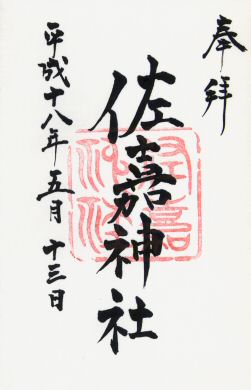 奉拝
佐嘉神社
平成十八年五月十三日